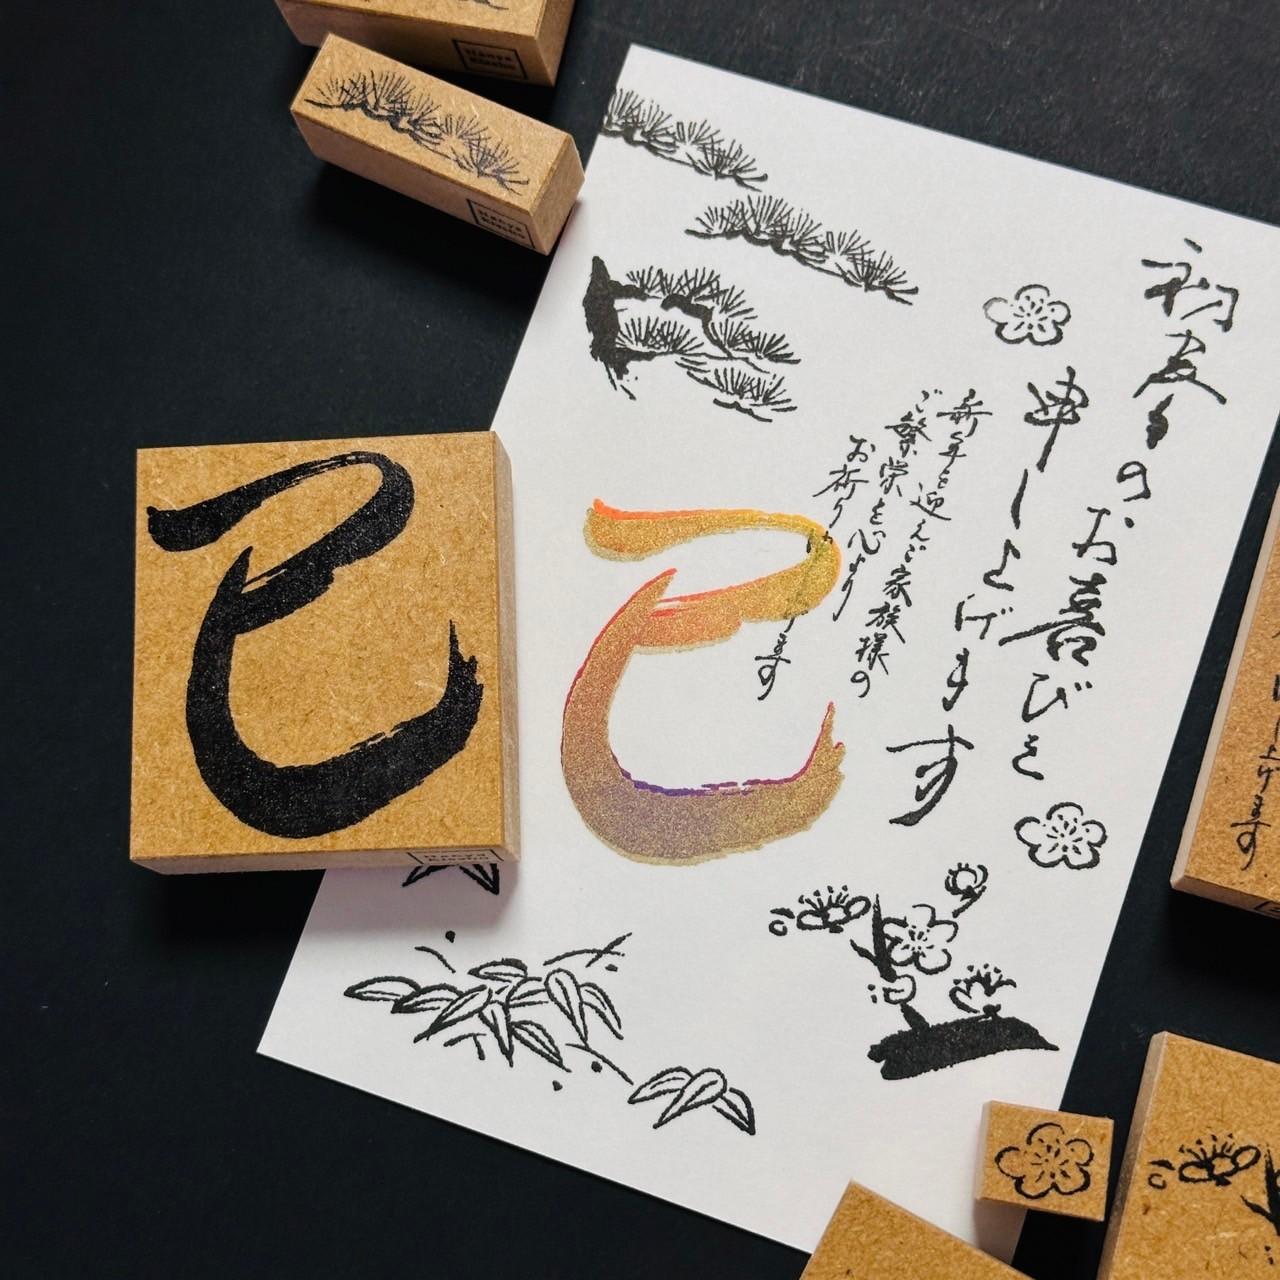 初春のお喜びを
申し上げます
新年を迎えご家族様の
ご繁栄を心より
お祈り
ます
巳
巳
上げます